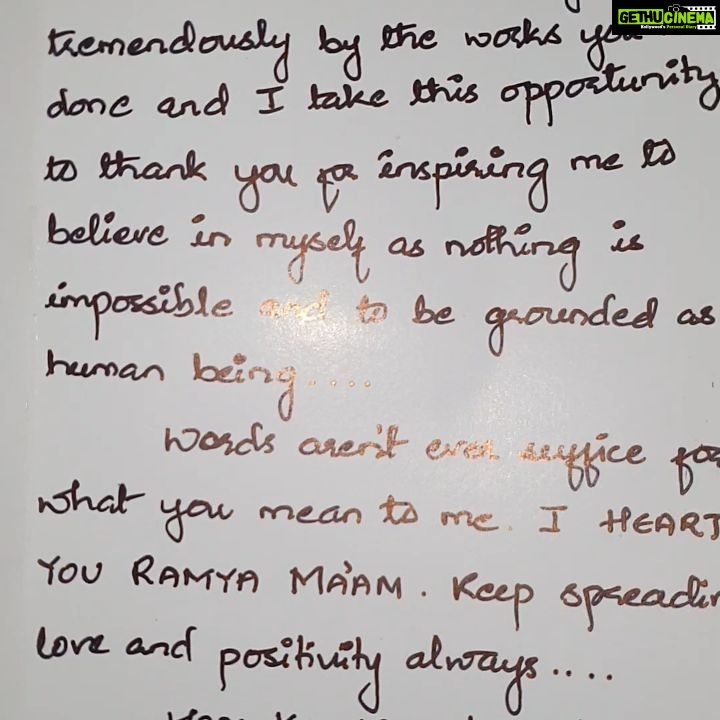 GETHUCINEMA
Kollywood's Personal Diary
tremendously by the works you
done and I take this opportunity
to thank you for inspiring me to
believe in myself as nothing is
impossible and to be grounded as
human being....
Words aren't even suffice for
what you mean to me. I HEART
YOU RAMYA MA'AM. Keep spreadin
love and positivity always....